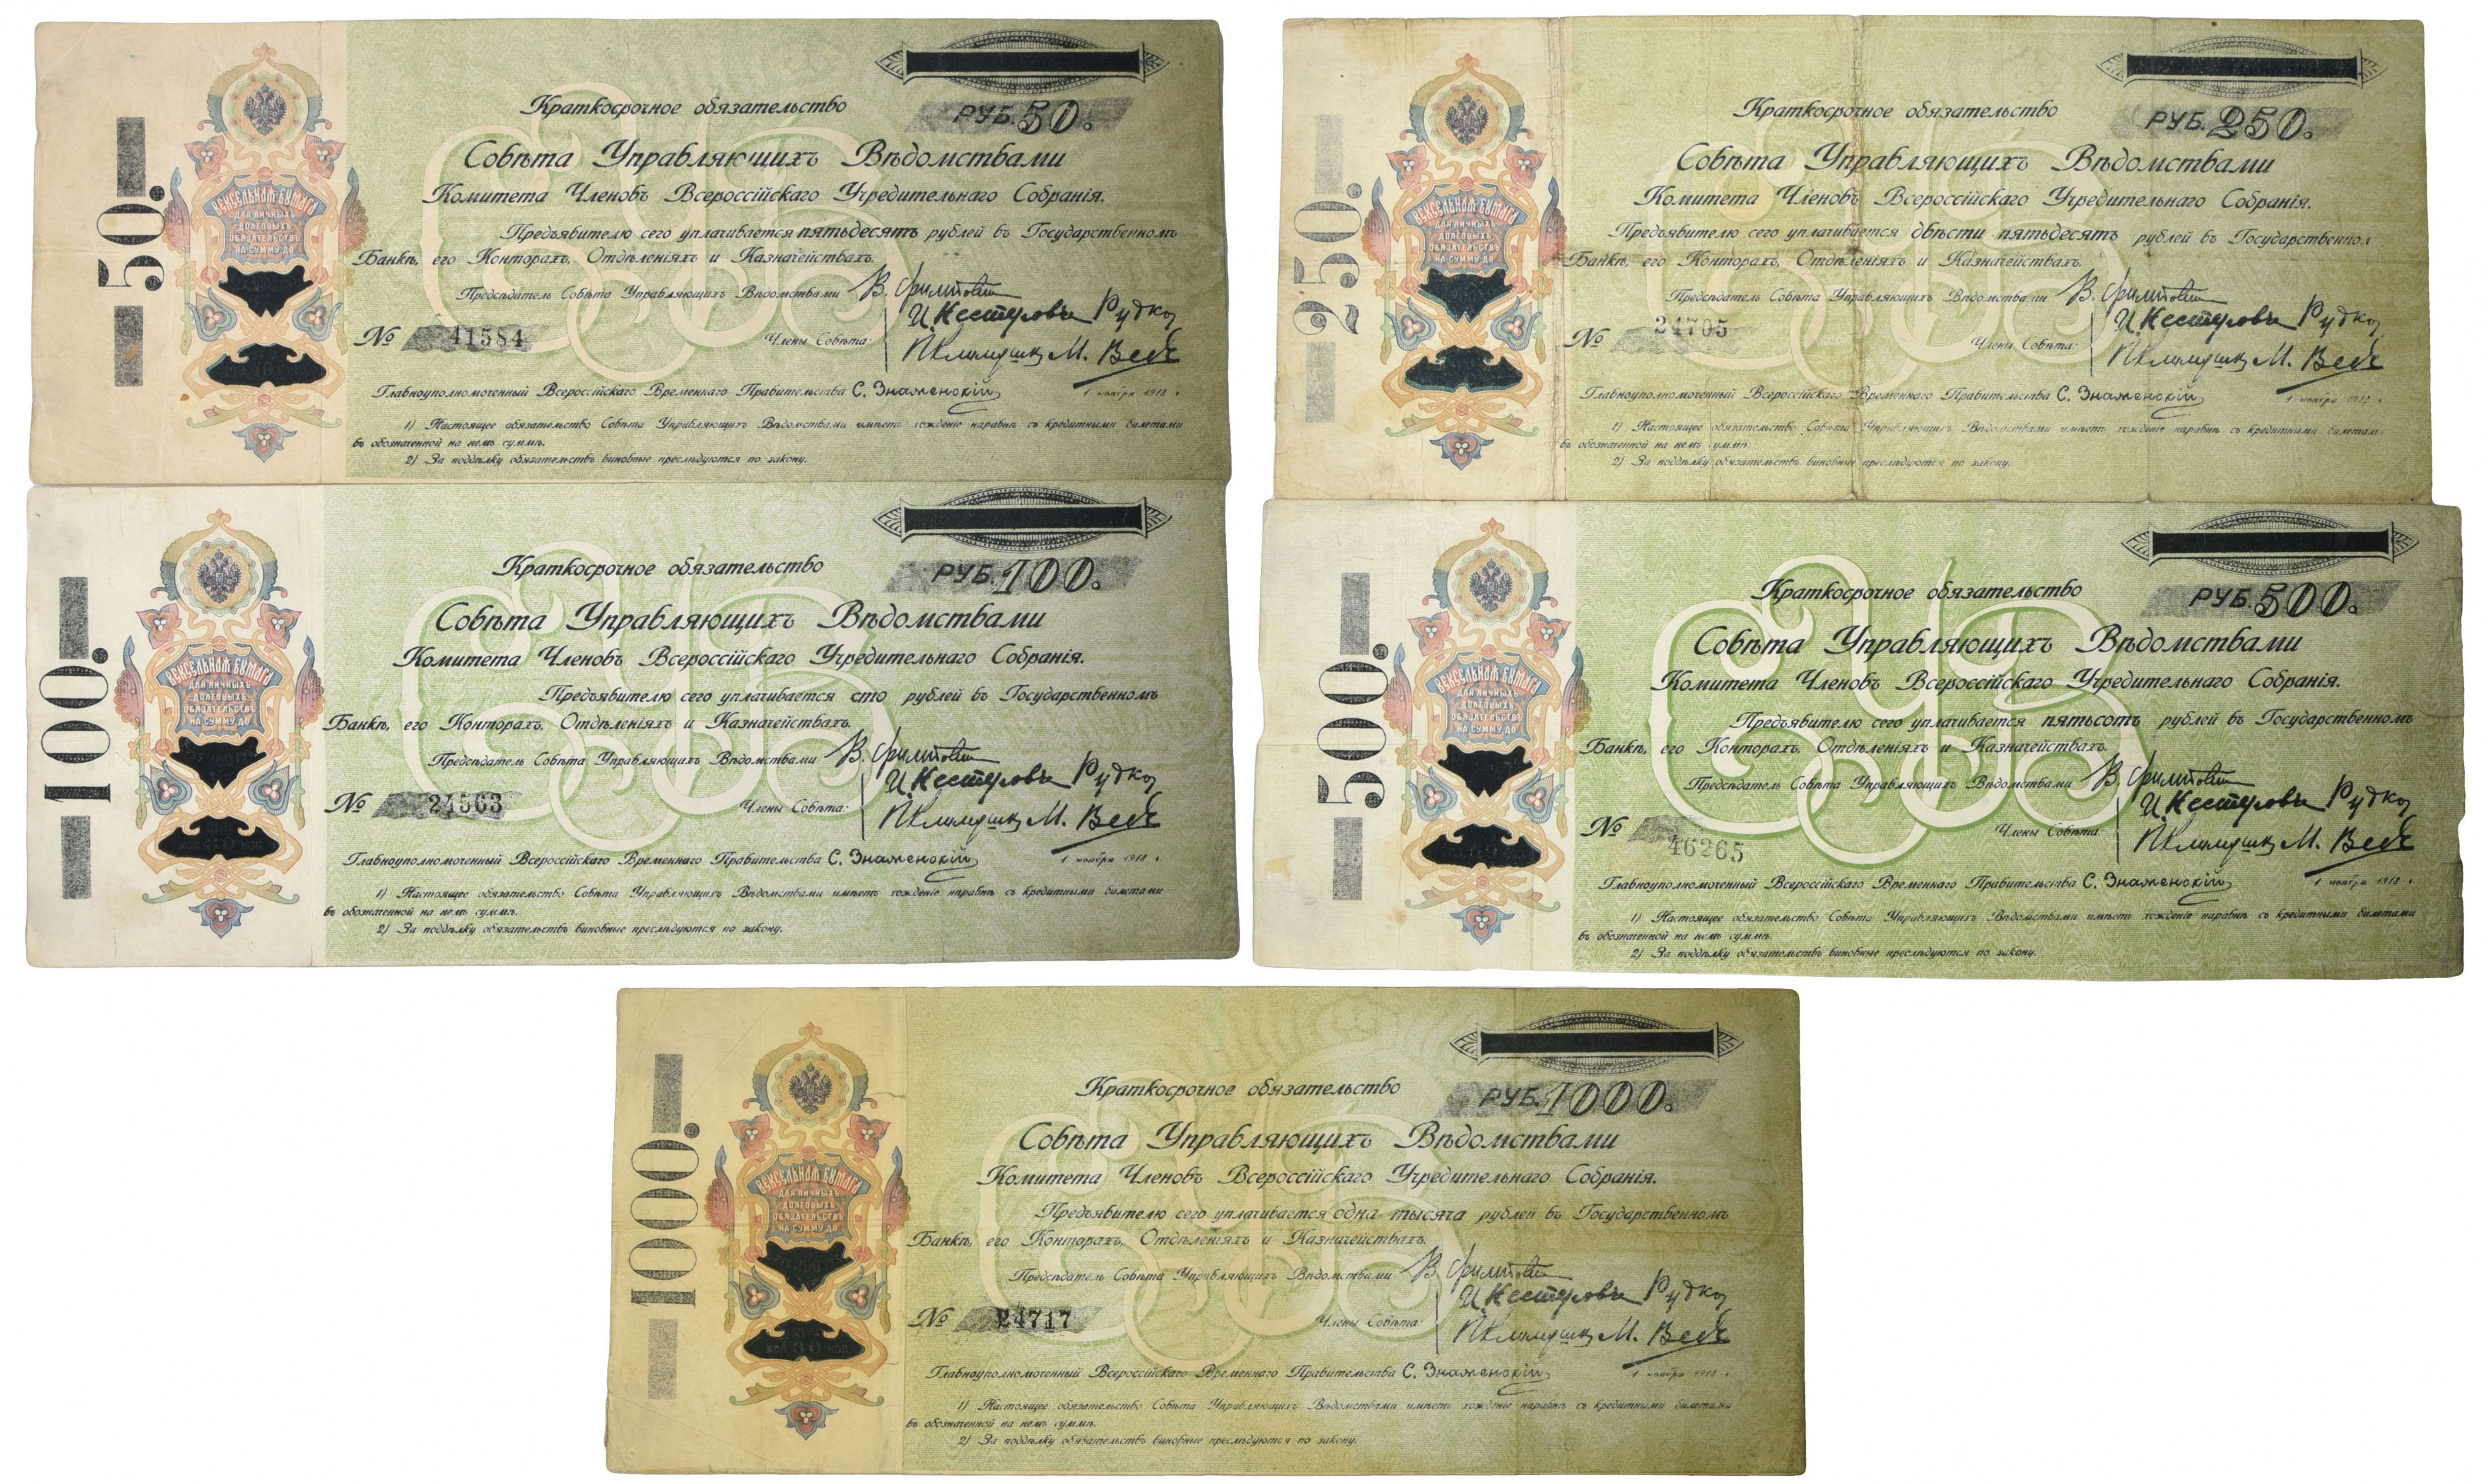 50.
ВЕКСЕЛЬНАЯ БУМАГА
ДЛЯ ЛИЧНЫХЪ
ДОЛГОВЫХЪ
ОБЯЗАТЕЛЬСТВЪ
НА СУММУ ДО
Краткосрочное обязательство
РУБ. 50.
Совѣта Управляющихъ Вѣдомствами
Комитета Членовъ Всероссійскаго Учредительнаго Собранія.
Предъявителю сего уплачивается пятьдесятъ рублей въ Государственномъ
Банкѣ, его Конторахъ, Отдѣленіяхъ и Казначействахъ.
Предсѣдатель Совѣта Управляющихъ Вѣдомствами
И. Нестеровъ Рудко
№ 41584
Члены Совѣта:
П. Климушкинъ М. Веденяпинъ
Главноуполномоченный Всероссійскаго Временнаго Правительства С. Знаменскій
1 ноября 1918 г.
1) Настоящее обязательство Совѣта Управляющихъ Вѣдомствами имѣетъ хожденіе наравнѣ съ кредитными билетами
въ обозначенной на немъ суммѣ.
2) За поддѣлку обязательствъ виновные преслѣдуются по закону.
250.
ВЕКСЕЛЬНАЯ БУМАГА
ДЛЯ ЛИЧНЫХЪ
ДОЛГОВЫХЪ
ОБЯЗАТЕЛЬСТВЪ
НА СУММУ ДО
Краткосрочное обязательство
РУБ. 250.
Совѣта Управляющихъ Вѣдомствами
Комитета Членовъ Всероссійскаго Учредительнаго Собранія.
Предъявителю сего уплачивается двѣсти пятьдесятъ рублей въ Государственном
Банкѣ, его Конторахъ, Отдѣленіяхъ и Казначействахъ.
Предсѣдатель Совѣта Управляющихъ Вѣдомствами
И. Нестеровъ Рудко
№ 24705
Члены Совѣта:
Главноуполномоченный Всероссійскаго Временнаго Правительства С. Знаменскій
1 ноября 1918 г.
1) Настоящее обязательство Совѣта Управляющихъ Вѣдомствами имѣетъ хожденіе наравнѣ съ кредитными билетам
въ обозначенной на немъ суммѣ.
2) За поддѣлку обязательствъ виновные преслѣдуются по закону.
100.
ВЕКСЕЛЬНАЯ БУМАГА
ДЛЯ ЛИЧНЫХЪ
ДОЛГОВЫХЪ
ОБЯЗАТЕЛЬСТВЪ
НА СУММУ ДО
Краткосрочное обязательство
РУБ. 100.
Совѣта Управляющихъ Вѣдомствами
Комитета Членовъ Всероссійскаго Учредительнаго Собранія.
Предъявителю сего уплачивается сто рублей въ Государственномъ
Банкѣ, его Конторахъ, Отдѣленіяхъ и Казначействахъ.
Предсѣдатель Совѣта Управляющихъ Вѣдомствами
И. Нестеровъ Рудко
№ 24563
Члены Совѣта:
Главноуполномоченный Всероссійскаго Временнаго Правительства С. Знаменскій
1 ноября 1918 г.
1) Настоящее обязательство Совѣта Управляющихъ Вѣдомствами имѣетъ хожденіе наравнѣ съ кредитными билетами
въ обозначенной на немъ суммѣ.
2) За поддѣлку обязательствъ виновные преслѣдуются по закону.
500.
ВЕКСЕЛЬНАЯ БУМАГА
ДЛЯ ЛИЧНЫХЪ
ДОЛГОВЫХЪ
ОБЯЗАТЕЛЬСТВЪ
НА СУММУ ДО
Краткосрочное обязательство
РУБ. 500.
Совѣта Управляющихъ Вѣдомствами
Комитета Членовъ Всероссійскаго Учредительнаго Собранія.
Предъявителю сего уплачивается пятьсотъ рублей въ Государственномъ
Банкѣ, его Конторахъ, Отдѣленіяхъ и Казначействахъ.
Предсѣдатель Совѣта Управляющихъ Вѣдомствами
И. Нестеровъ Рудко
№ 46265
Члены Совѣта:
Главноуполномоченный Всероссійскаго Временнаго Правительства С. Знаменскій
1 ноября 1918 г.
1) Настоящее обязательство Совѣта Управляющихъ Вѣдомствами имѣетъ хожденіе наравнѣ съ кредитными билетами
въ обозначенной на немъ суммѣ.
2) За поддѣлку обязательствъ виновные преслѣдуются по закону.
1000.
ВЕКСЕЛЬНАЯ БУМАГА
ДЛЯ ЛИЧНЫХЪ
ДОЛГОВЫХЪ
ОБЯЗАТЕЛЬСТВЪ
НА СУММУ ДО
Краткосрочное обязательство
РУБ. 1000.
Совѣта Управляющихъ Вѣдомствами
Комитета Членовъ Всероссійскаго Учредительнаго Собранія.
Предъявителю сего уплачивается одна тысяча рублей въ Государственномъ
Банкѣ, его Конторахъ, Отдѣленіяхъ и Казначействахъ.
Предсѣдатель Совѣта Управляющихъ Вѣдомствами
И. Нестеровъ Рудко
№
Члены Совѣта:
Главноуполномоченный Всероссійскаго Временнаго Правительства С. Знаменскій
1 ноября 1918 г.
1) Настоящее обязательство Совѣта Управляющихъ Вѣдомствами имѣетъ хожденіе наравнѣ съ кредитными билетами
въ обозначенной на немъ суммѣ.
2) За поддѣлку обязательствъ виновные преслѣдуются по закону.